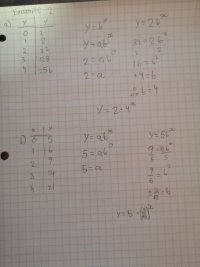 Example 2
a) x y
0 2
1 8
2 32
3 128
4 256
y=b^x
y=ab^x
2=ab^0
2=a
y=2b^x
32=2b^2
16=b^2
±4=b
b=4
y=2·4^x
b) x y
0 5
1 6
2 9
3 14
4 21
y=ab^x
5=ab^0
5=a
y=5b^x
9=5b^2
5 5
9/5=b^2